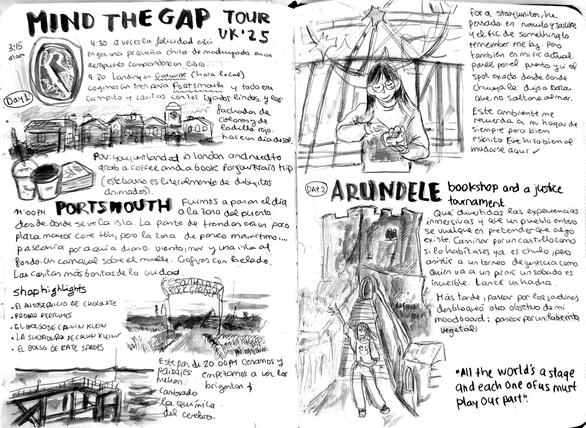 MIND THE GAP TOUR
UK'25
3:15
a.m
DAY 1
4:30 a veces la felicidad está
en ser una pequeña chica de madrugada en un
aeropuerto comprandose un libro.
9:20 landing en Gatwick (hora local)
Cogimos un tren para Portsmouth y todo era
campito y casitas con tejados lindos, y
fachadas de
colores y de
ladrillo rojo.
hace un día
Pov: you just landed in london and need to
grab a coffee and a book for your train trip
(este barrio es literalmente de dibujitos
animados).
11:00 PM
PORTSMOUTH
Fuimos a pasar el día
a la zona del puerto
desde donde se ve la isla. La parte de tiendas era
plaza mayor core tbh, pero la zona de paseo marítimo...
pasearía por aquí a diario. Viento, mar y una isla al
fondo. Un carnaval sobre el muelle. Gofres con helado.
Las casitas más bonitas de la ciudad
shop highlights
• EL AUTOSERVICIO DE CHOCOLATE
• PROBAR PERFUMES
• EL BOLSO DE CALVIN KLEIN
• LA SUDADERA DE CALVIN KLEIN
• EL BOLSO DE KATE SPADES
SOUTHSEA
ROCK GARDENS
Este par de
paisajes
habían
cambiado
la química
del cerebro.
20:00 PM Cenamos y
empezamos a ver los
brigerton
Fue a story writer, he
pensado en
y el fic de something to
remember me by. Pero
también en mi fic actual
pasé por el puente y vi el
spot exacto desde donde
que no saltara al mar.
Este ambiente me
recuerda a mi hogar de
siempre pero bien
escrito. Eve hizo bien al
mudarse aquí ✓
DAY 2
ARUNDELE bookshop and a justice
tournament
Qué divertidas las experiencias
inmersivas y que un pueblo entero
se vuelque en pretender que algo
existe. Caminar por un castillo como
si lo habitases ya es chulo, pero
asistir a un torneo de justicia como
quien va a un picnic un sábado es
increíble. Lance un hadra.
Más tarde, pasear por los jardines
desbloqueó otro objetivo de mi
moodboard: pasear por un laberinto
vegetal.
"All the world's a stage
and each one of us must
play our part".